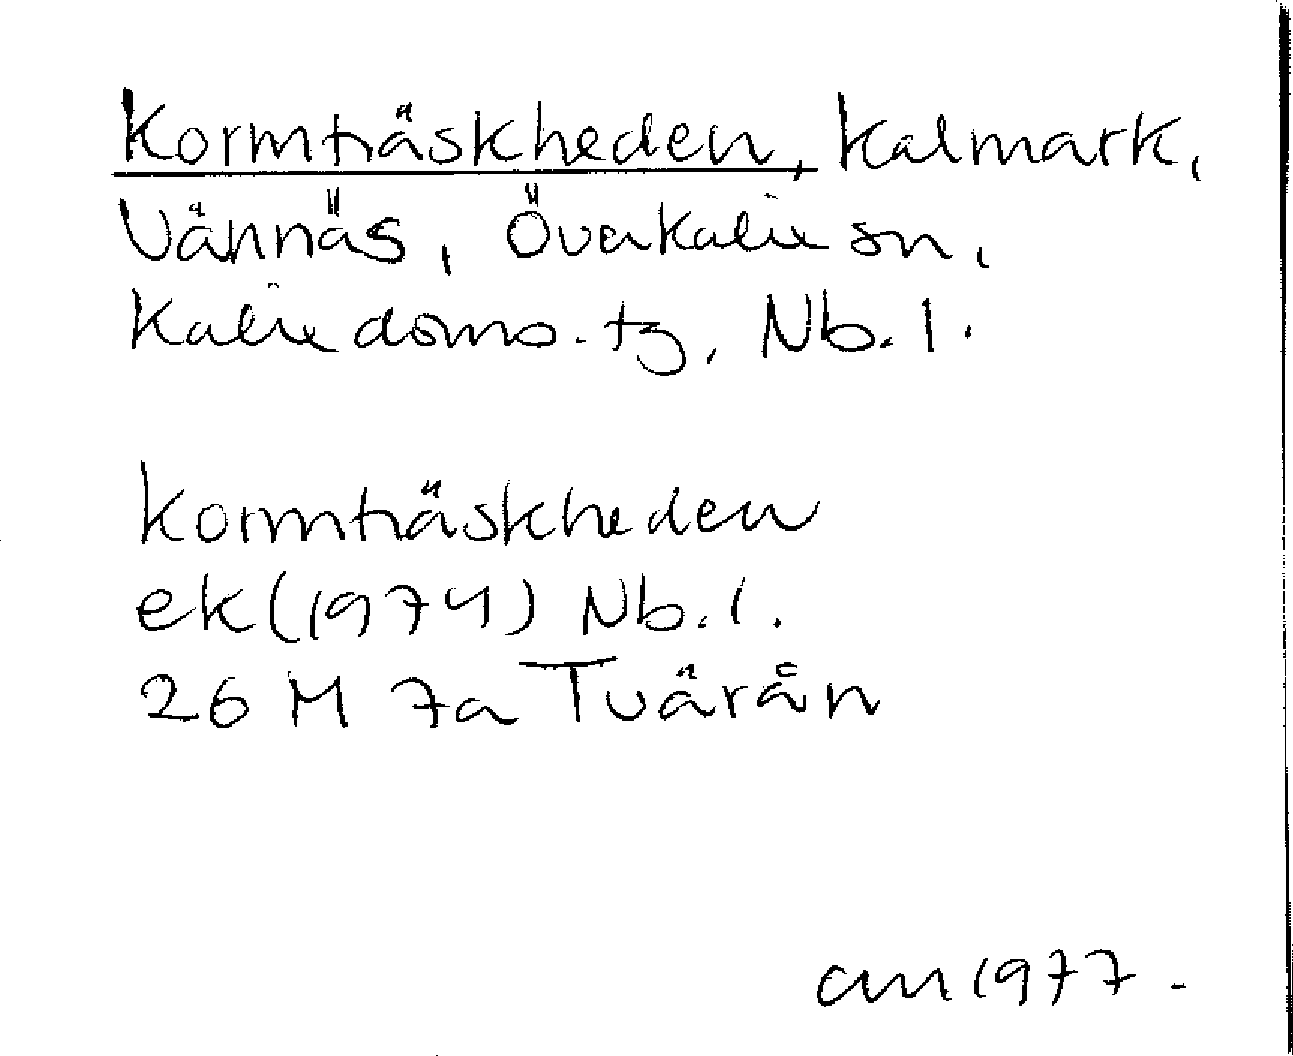 Kormträskheden, kalmark,
Vännäs, Överkalix sn,
Kalix doms. tg, Nb. l.
Kormträskheden
ek (1974) Nb. l.
26 M 7a Tvärån
am 1977.